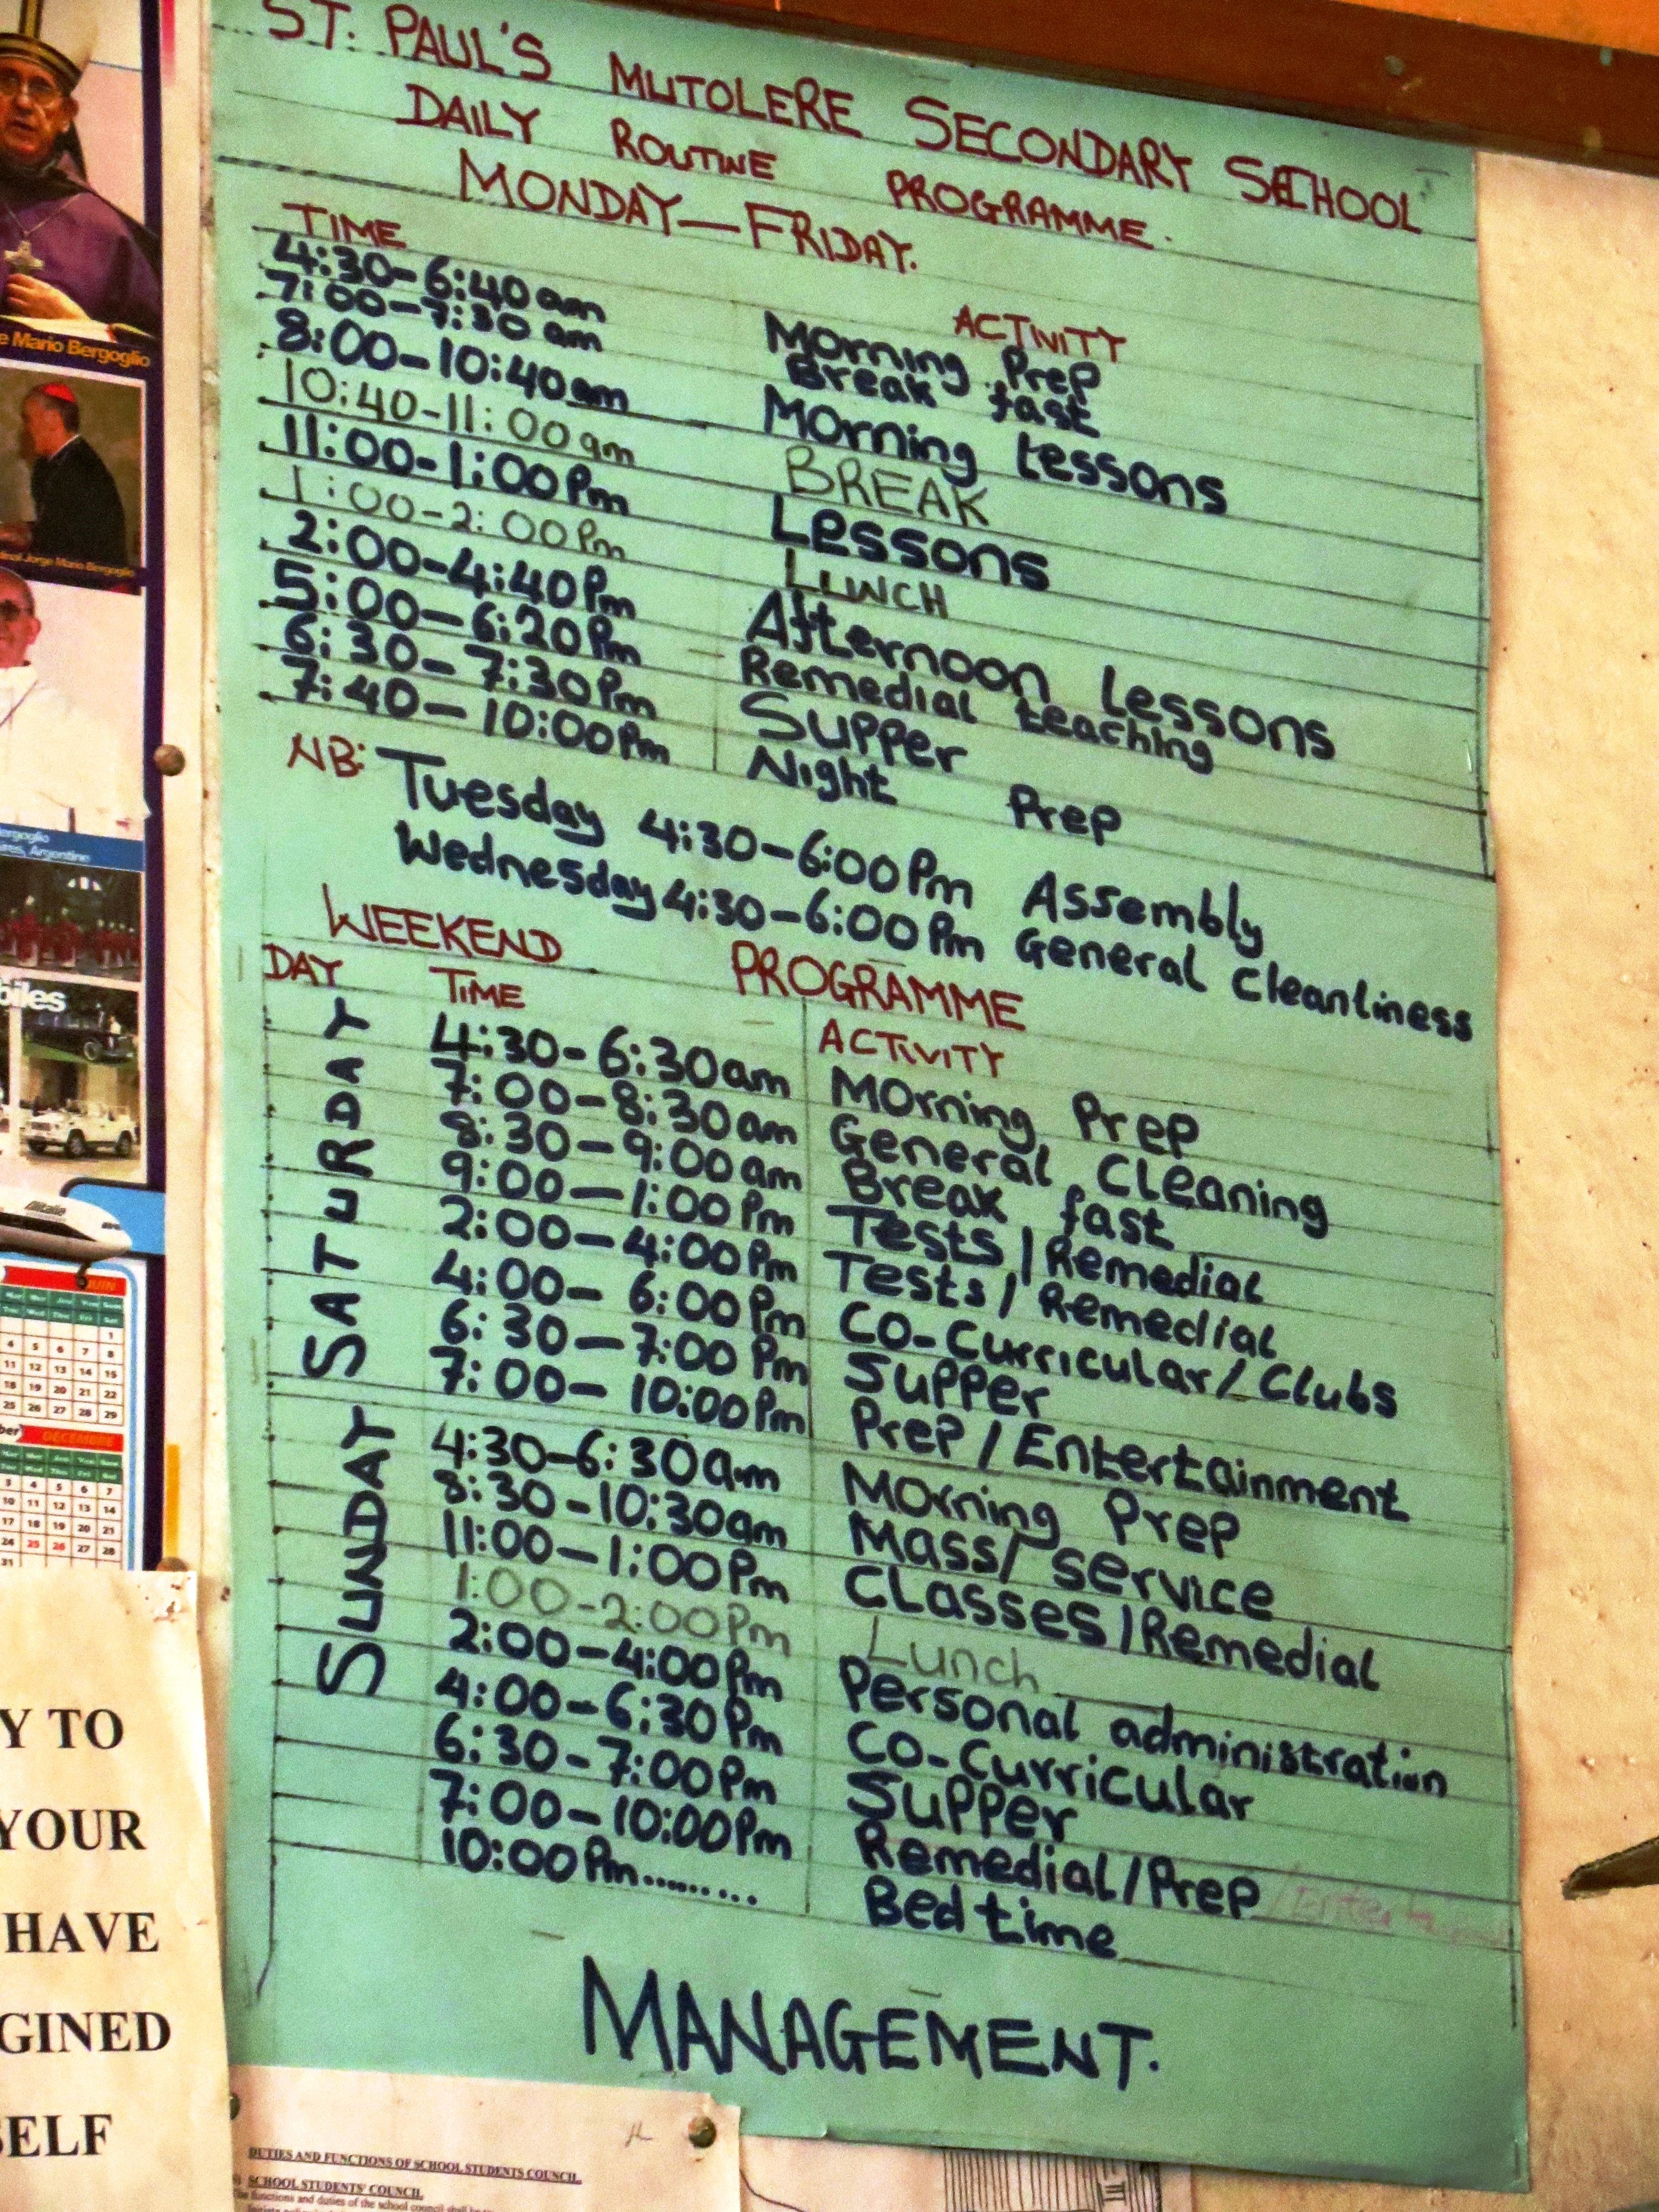 ST. PAUL'S MUTOLERE SECONDARY SCHOOL
DAILY ROUTINE PROGRAMME.
MONDAY—FRIDAY.
TIME ACTIVITY
4:30-6:40 am Morning Prep
7:00-7:30 am Break fast
8:00-10:40am Morning Lessons
10:40-11:00am BREAK
11:00-1:00Pm Lessons
1:00-2:00Pm LUNCH
2:00-4:40Pm Afternoon Lessons
5:00-6:20Pm Remedial teaching
6:30-7:30Pm Supper
7:40-10:00Pm Night Prep
NB: Tuesday 4:30-6:00Pm Assembly
Wednesday 4:30-6:00Pm General Cleanliness
WEEKEND PROGRAMME
DAY TIME ACTIVITY
SATURDAY
4:30-6:30am Morning Prep
7:00-8:30am General Cleaning
8:30-9:00am Break fast
9:00-1:00Pm Tests/Remedial
2:00-4:00Pm Tests/Remedial
4:00-6:00Pm Co-Curricular/Clubs
6:30-7:00Pm Supper
7:00-10:00Pm Prep/Entertainment
SUNDAY
4:30-6:30am Morning Prep
8:30-10:30am Mass/Service
11:00-1:00Pm Classes/Remedial
1:00-2:00Pm Lunch
2:00-4:00Pm Personal administration
4:00-6:30Pm Co-Curricular
6:30-7:00Pm Supper
7:00-10:00Pm Remedial/Prep
10:00Pm......... Bedtime
MANAGEMENT.
Mario Bergoglio
Jorge Mario Bergoglio
Argentine
Alitalia
JUIN
DECEMBRE
Y TO
YOUR
HAVE
GINED
SELF
DUTIES AND FUNCTIONS OF SCHOOL STUDENTS COUNCIL.
SCHOOL STUDENTS' COUNCIL
functions and duties of the school council shall be